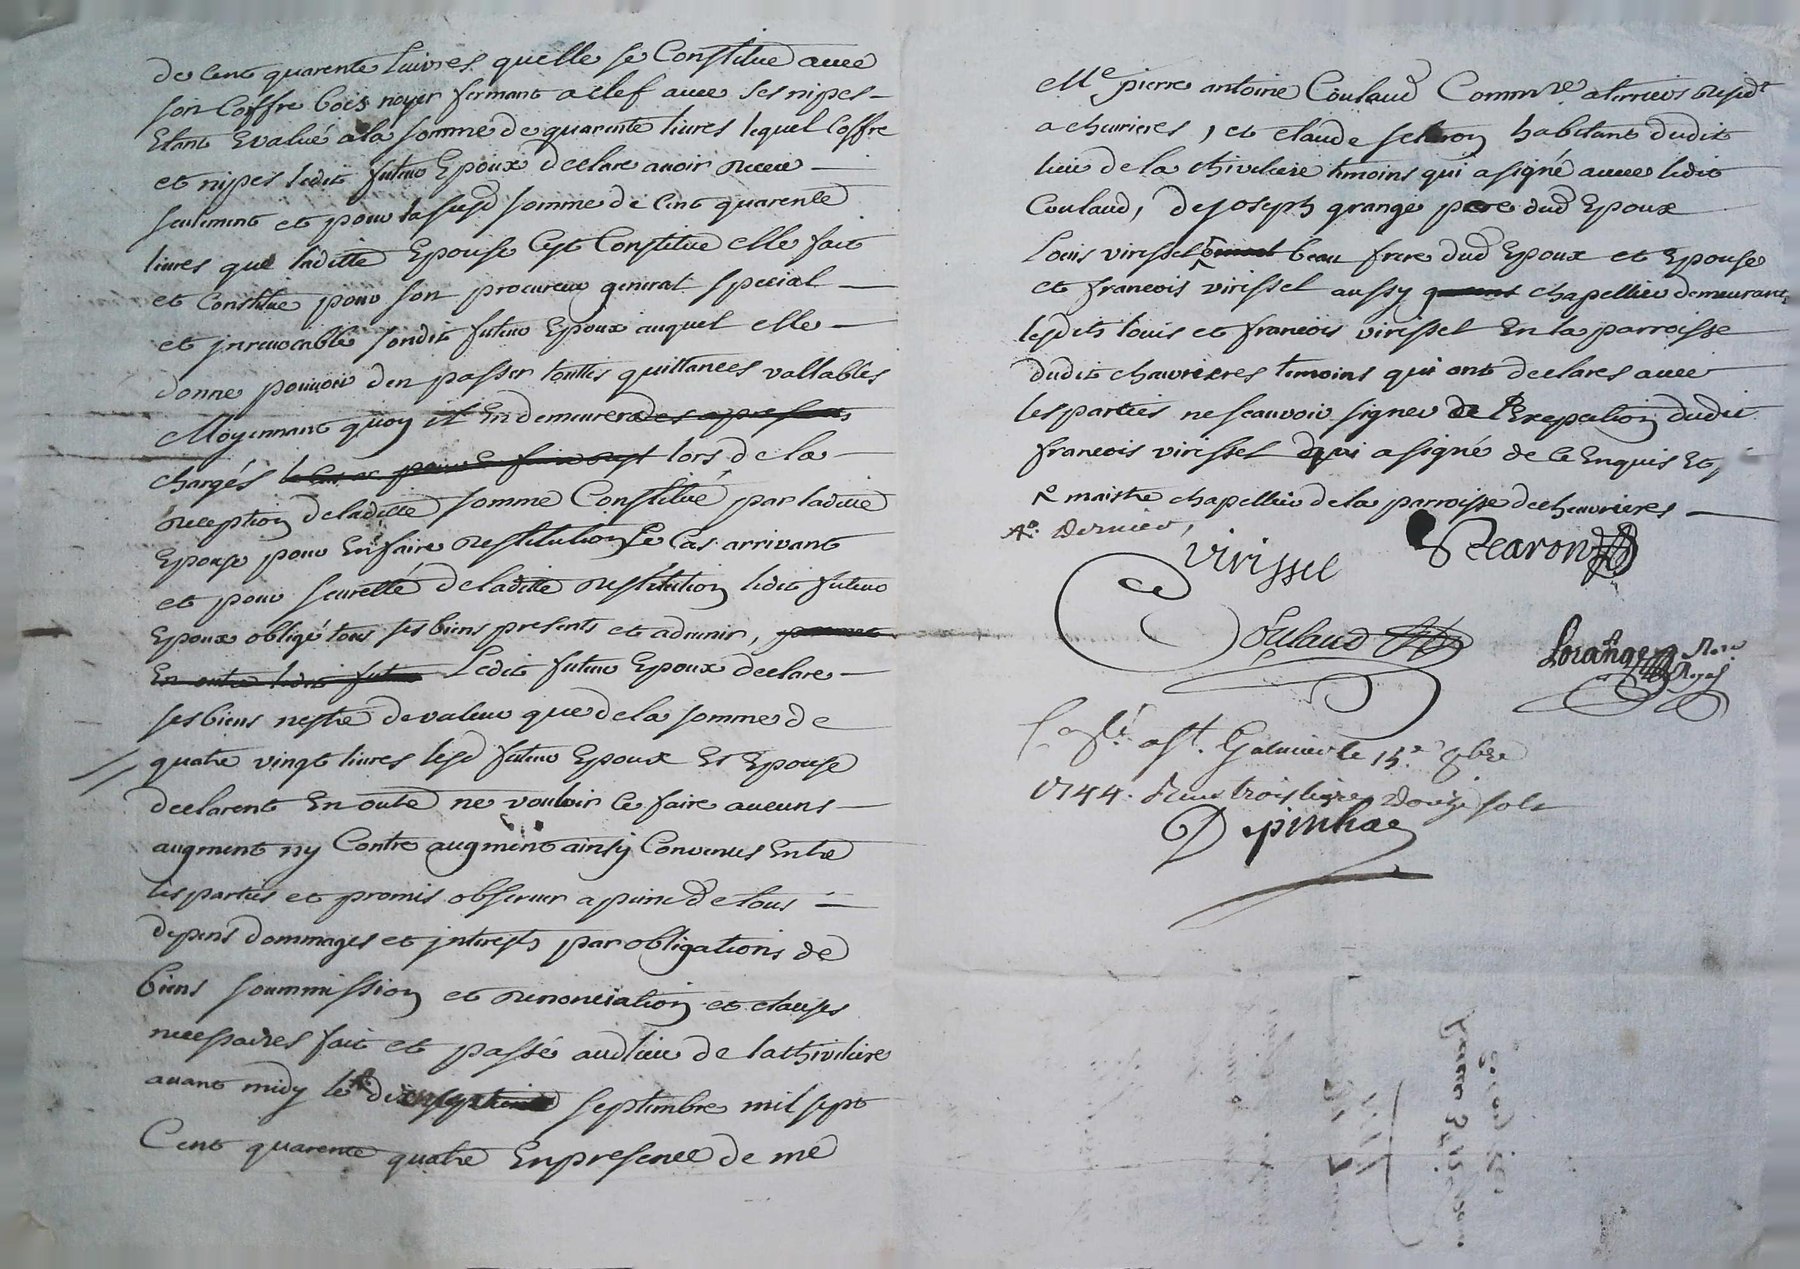 de cent quarente Luivres quelle se Constitue avec
son Coffre bois noyer fermant a clef avec ses nipes
Etant Evalué a la somme de quarente livres lequel Coffre
et nipes ledit futeur Epoux declare avoir receu
seulement et pour la susd somme de cent quarente
livres que laditte Epouse Cest Constitue elle fait
et Constitue pour son procureur general special
et jrrevocable sondit futeur Epoux auquel elle
donne pouvoir den passer touttes quittances vallables
Moyennant quoy il En demeurera des a present
chargés lors de la
reception de laditte somme Constitué par laditte
Epouse pour En faire restitution Le Cas arrivant
et pour seuretté de laditte restitution ledit futeur
Epoux obligé tous ses biens presents et advenir,
En outre ledit futeur Ledit futeur Epoux declare
ses biens nestre de valeur que de la somme de
quatre vingt livres lesd futeur Epoux Et Epouse
declarent En outre ne vouloir ce faire aucuns
augment ny Contre augment ainsy Convenus Entre
les parties et promis observer a peine de tous
depens dommages et jnterests par obligations de
biens soummission et renonciation et clauses
necessaires fait et passé aud lieu de la thiviliere
avant midy le septembre mil sept
Cent quarente quatre En presence de me
Me pierre antoine Coulaud Commre a terriers resid.t
a chevrieres, et claude habitant dudit
lieu de la thiviliere temoins qui a signé avec ledit
Coulaud, de joseph grange pere dud Epoux
Louis virissel beau frere dud Epoux et Epouse
et francois virissel aussy chapellier demeurants
lesdits louis et francois virissel En la parroisse
dudit chevrieres temoins qui ont declares avec
les parties ne scauvoir signer de l'Exepation dudit
francois virissel qui a signé de ce Enquis Et
maistre chapellier de la parroisse de chevrieres
Dernier,
Virissel
Coulaud
Lorange Nore Royal
a st. Galmier le 15.e 7bre
1744. Reçu trois livres Douze sols
Depinhac